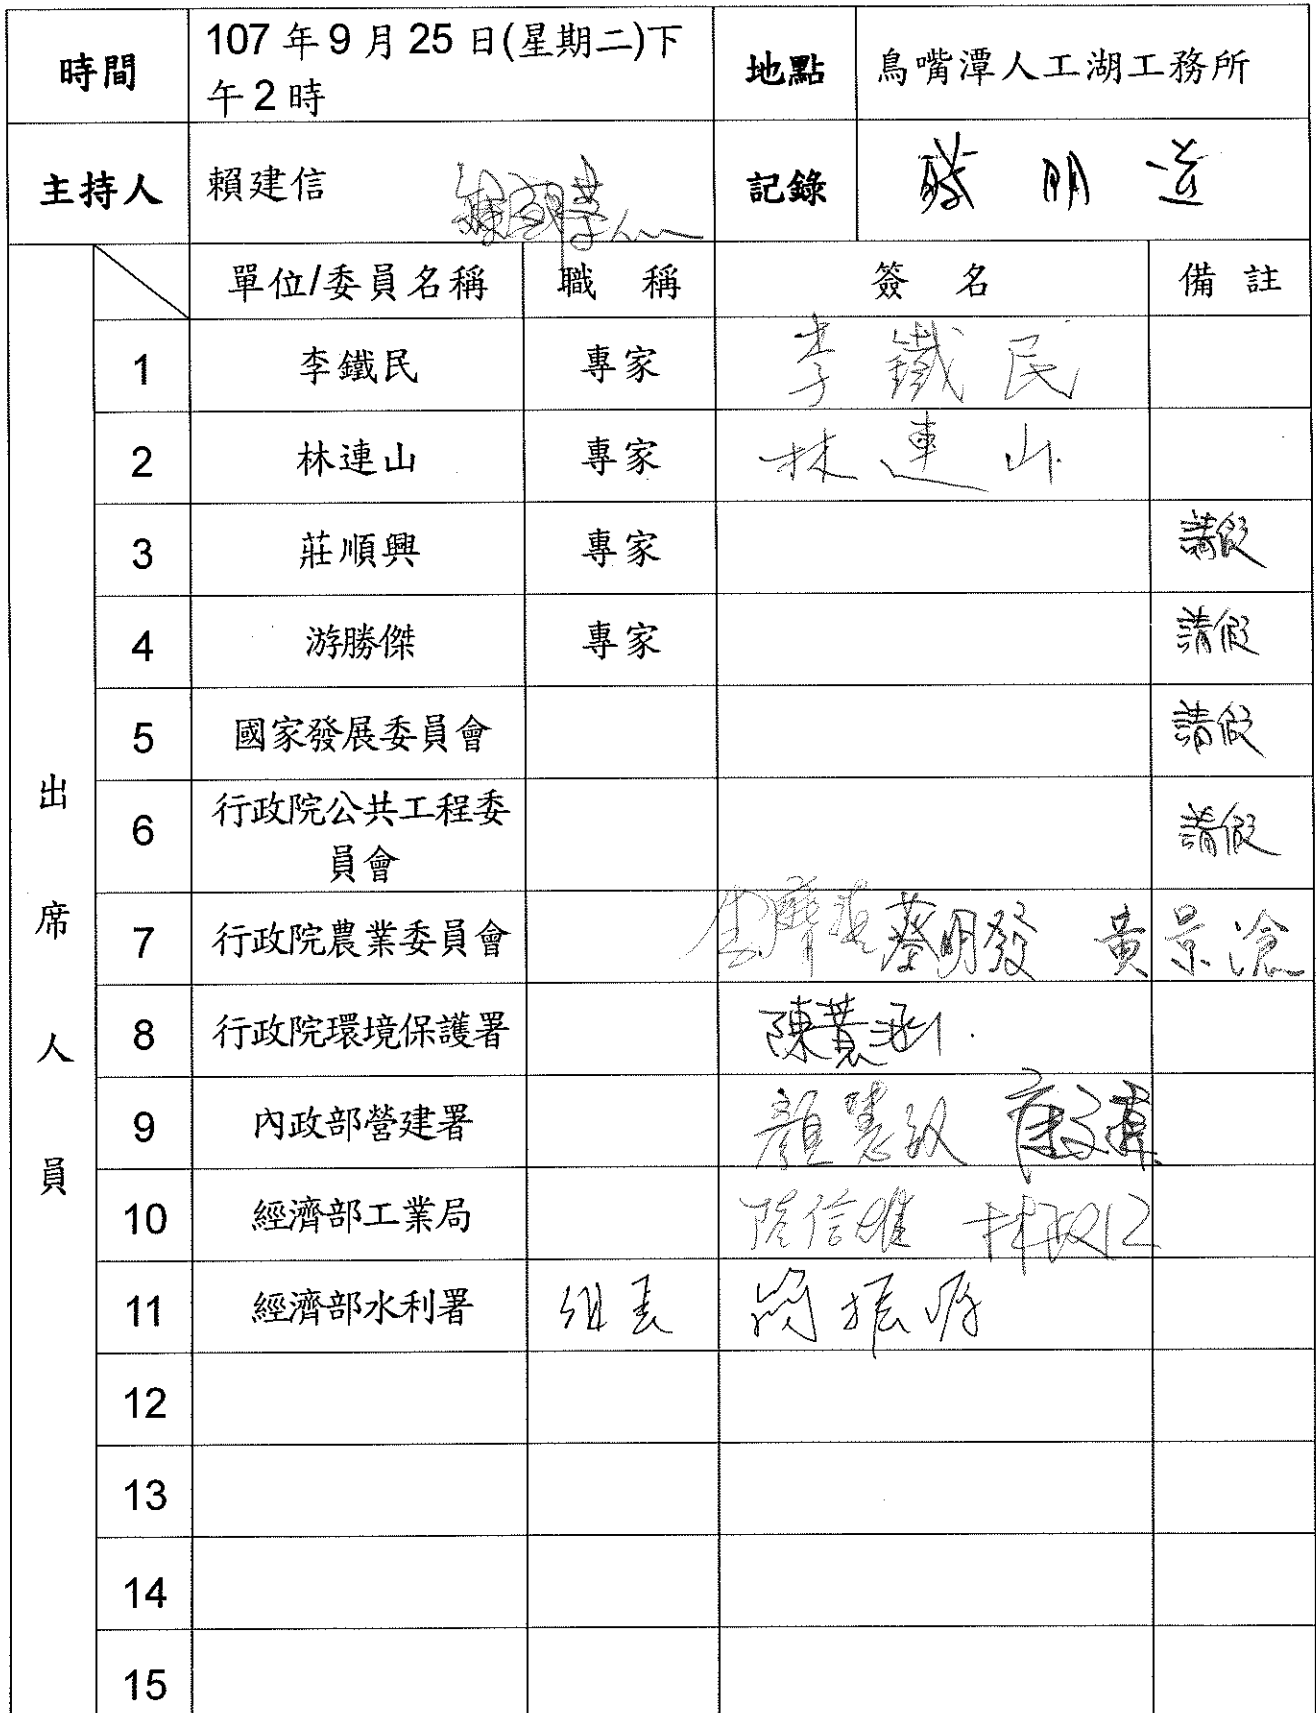 時間 107 年 9 月 25 日(星期二)下午 2 時 地點 鳥嘴潭人工湖工務所
主持人 賴建信 記錄 蔡明道
單位/委員名稱 職稱 簽名 備註
出席人員
1 李鐵民 專家 李鐵民
2 林連山 專家 林連山
3 莊順興 專家 請假
4 游勝傑 專家 請假
5 國家發展委員會 請假
6 行政院公共工程委員會 請假
7 行政院農業委員會 蔡明發 黃景滄
8 行政院環境保護署
9 內政部營建署 顏慧敏
10 經濟部工業局
11 經濟部水利署 組長 簡振源
12
13
14
15